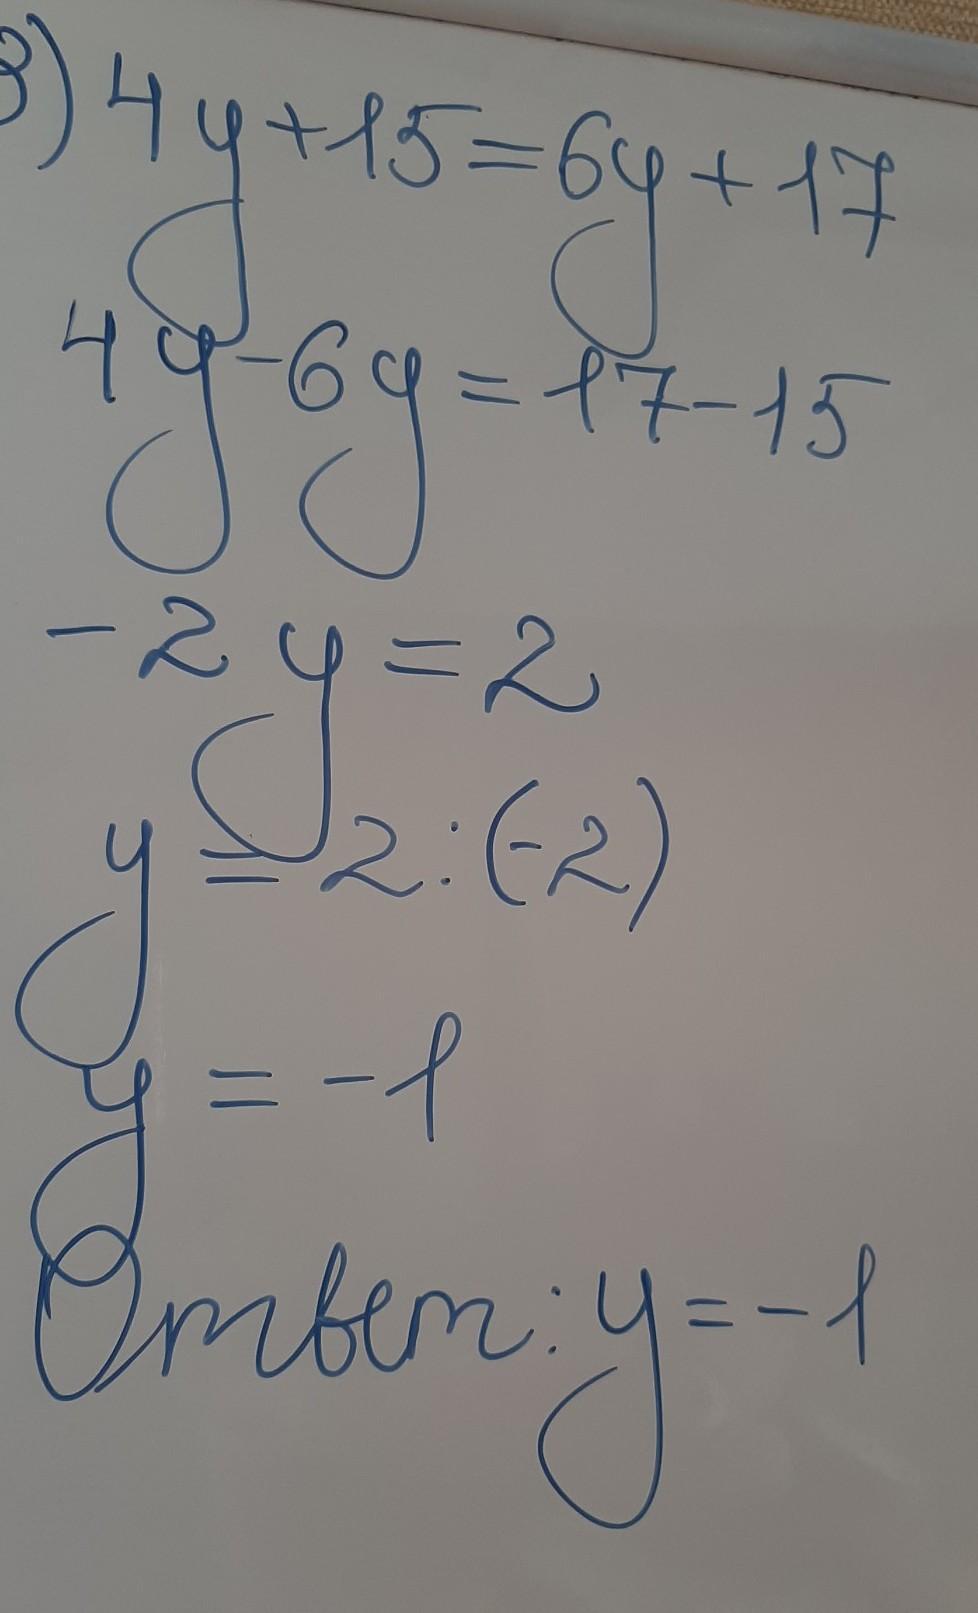 3) 4y+15=6y+17
4y-6y=17-15
-2y=2
y=2:(-2)
y=-1
Ответ: y=-1